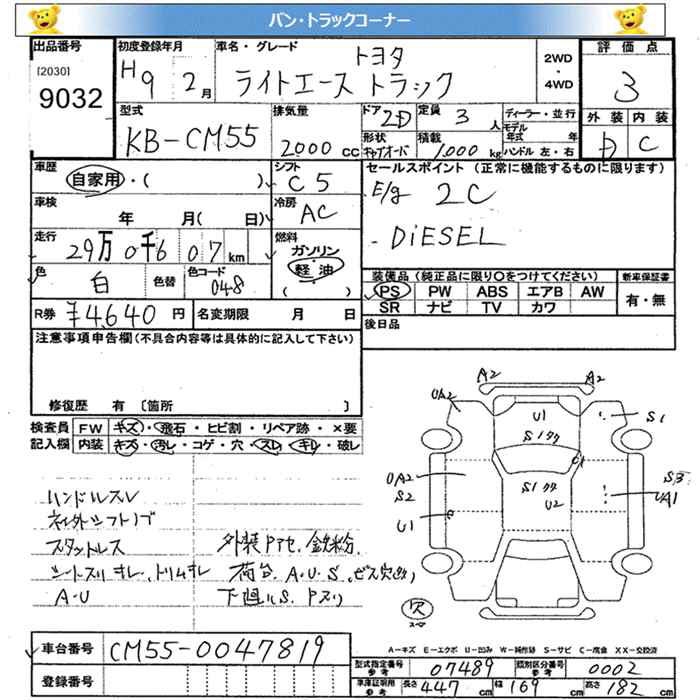 バン・トラックコーナー
出品番号
[2030]
9032
初度登録年月
H9 2月
車名・グレード
トヨタ
ライトエース トラック
2WD
・
4WD
評価点
3
外装 内装
D C
型式
KB-CM55
排気量
2000 CC
ドア
2D
定員
3 人
形状
積載
1,000 kg
ディーラー・並行
モデル
年式 年
ハンドル 左・右
車歴
自家用・( )
シフト
C5
セールスポイント (正常に機能するものに限ります)
E/g 2C
・DiESEL
車検
年 月(日)
冷房
AC
走行
29万0千607km
燃料
ガソリン
軽油
( )
色
白
色替
色コード
048
装備品 (純正品に限り〇をつけてください)
PS PW ABS エアB AW
SR ナビ TV カワ
新車保証書
有・無
R券 ¥4,640円
名変期限 月 日
後日品
注意事項申告欄 (不具合内容等は具体的に記入して下さい)
修復歴 有 〔箇所 〕
検査員
記入欄
FW キズ・飛石・ヒビ割・リペア跡・×要
内装 キズ・汚レ・コゲ・穴・スレ・キレ・破レ
ハンドルスレ
スタットレス
A・U
外装Pアセ、鉄粉
荷台、A・U・S、ビス穴
下廻りS、Pヌリ
A2
A2
UA2
U1
S1
S1
UA2
S2
S1
U2
UA1
U1
欠
A-キズ E-エクボ U-凹み W-補修跡 S-サビ C-腐食 XX-交換済
車台番号
CM55-0047819
登録番号
型式指定番号
参考
07489
類別区分番号
参考
0002
車庫証明用
参考
長さ 447cm 幅 169cm 高さ 182cm